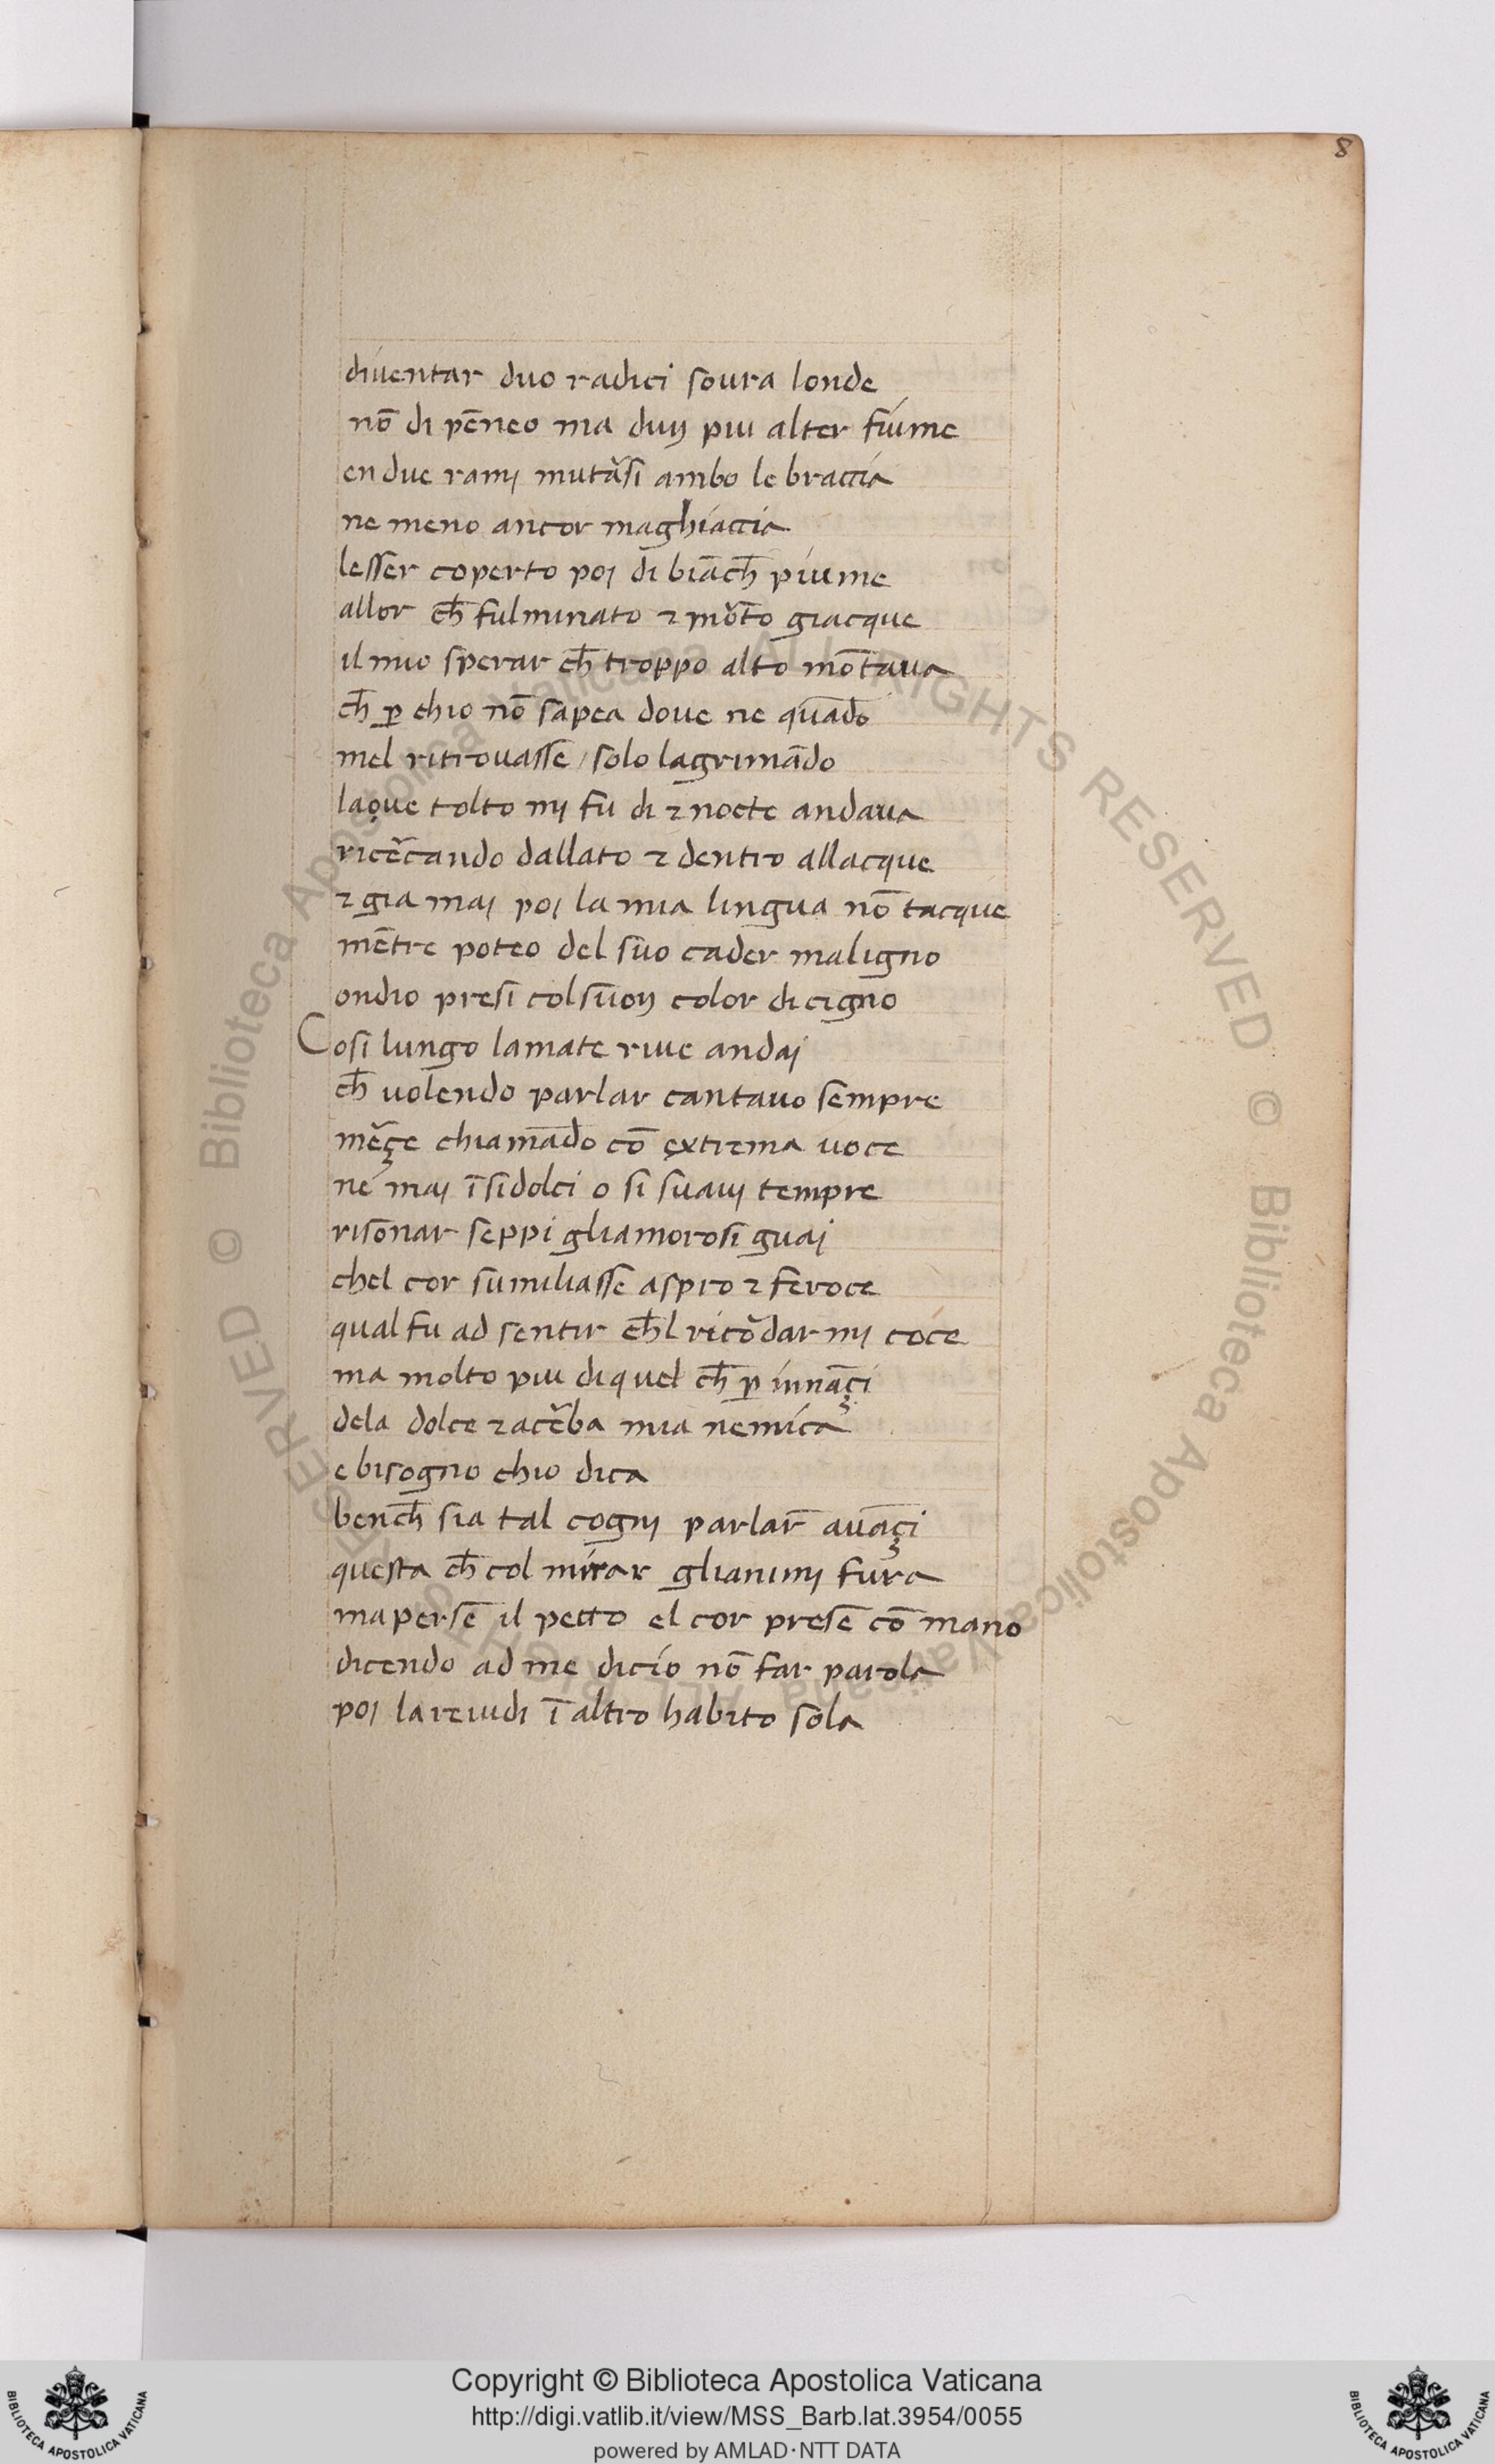 8
diuentar duo radici soura londe
nō di pēneo ma duŋ piu alter fiume
en due ramj mutãsi ambo le braccia
ne meno ancor maghiaccia
lesser coperto poj di biāch̄ piume
allor ch̄ fulminato ⁊ mōto giacque
il mio sperar ch̄ troppo alto mōtaua
ch̄ ꝑ chio nō sapea doue ne quādo
mel ritrouasse / solo lagrimādo
laoue tolto mj fu di ⁊ nocte andaua
ricẽcando dallato ⁊ dentro allacque
⁊ gia maj poj la mia lingua nō tacque
mētre poteo del suo cader maligno
ondio presi col suoŋ color di cigno
Cosi lungo lamate riue andaj
ch̄ uolendo parlar cantauo sempre
mẽçe chiamādo cō extrema uoce
ne maj ī si dolci o si suauj tempre
risonar seppi gliamorosi guaj
chel cor sumiliasse aspro ⁊ feroce
qual fu ad sentir ch̄l ricõdar mj coce
ma molto piu di quel ch̄ ꝑ innāçi
dela dolce ⁊ acẽba mia nemica
e bisogno chio dica
bench̄ sia tal cognj parlar̄ auāçi
questa ch̄ col mirar glianimj fura
maperse il pecto el cor prese cō mano
dicendo ad me dicio nō far parola
poj lareuidi ī altro habito sola
Copyright © Biblioteca Apostolica Vaticana
http://digi.vatlib.it/view/MSS_Barb.lat.3954/0055
powered by AMLAD·NTT DATA
BIBLIOTECA APOSTOLICA VATICANA
BIBLIOTECA APOSTOLICA VATICANA